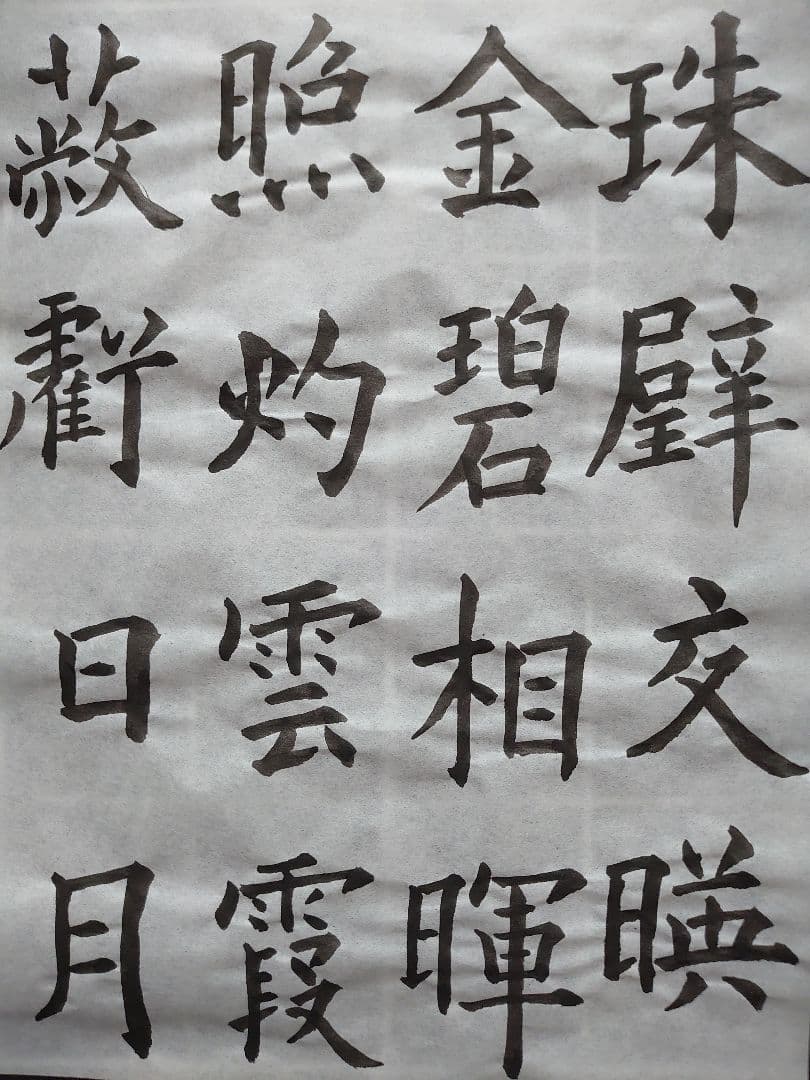 珠璧交暎
金碧相暉
照灼雲霞
蔽虧日月